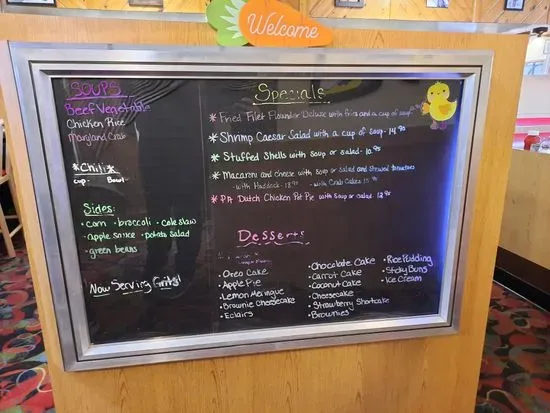 Welcome
SOUPS
Beef Vegetable
Chicken Rice
Maryland Crab
*Chili*
cup- Bowl-
Sides:
• corn • broccoli • coleslaw
• apple sauce • potato salad
- green beans
Now Serving Grits!
Specials
* Fried Filet Flounder Deluxe with fries and a cup of soup-
* Shrimp Caesar Salad with a cup of soup- 14.95
* Stuffed Shells with soup or salad- 10.95
* Macaroni and cheese with soup or salad and stewed tomatoes
- with Haddock- - with Crab Cakes
* PA Dutch Chicken Pot Pie with soup or salad-
Desserts
• Oreo Cake
• Apple Pie
• Lemon Meringue
• Brownie Cheesecake
• Eclairs
• Chocolate Cake
• Carrot Cake
• Coconut Cake
• Cheesecake
• Strawberry Shortcake
• Brownies
• Rice Pudding
• Sticky Buns
• Ice Cream